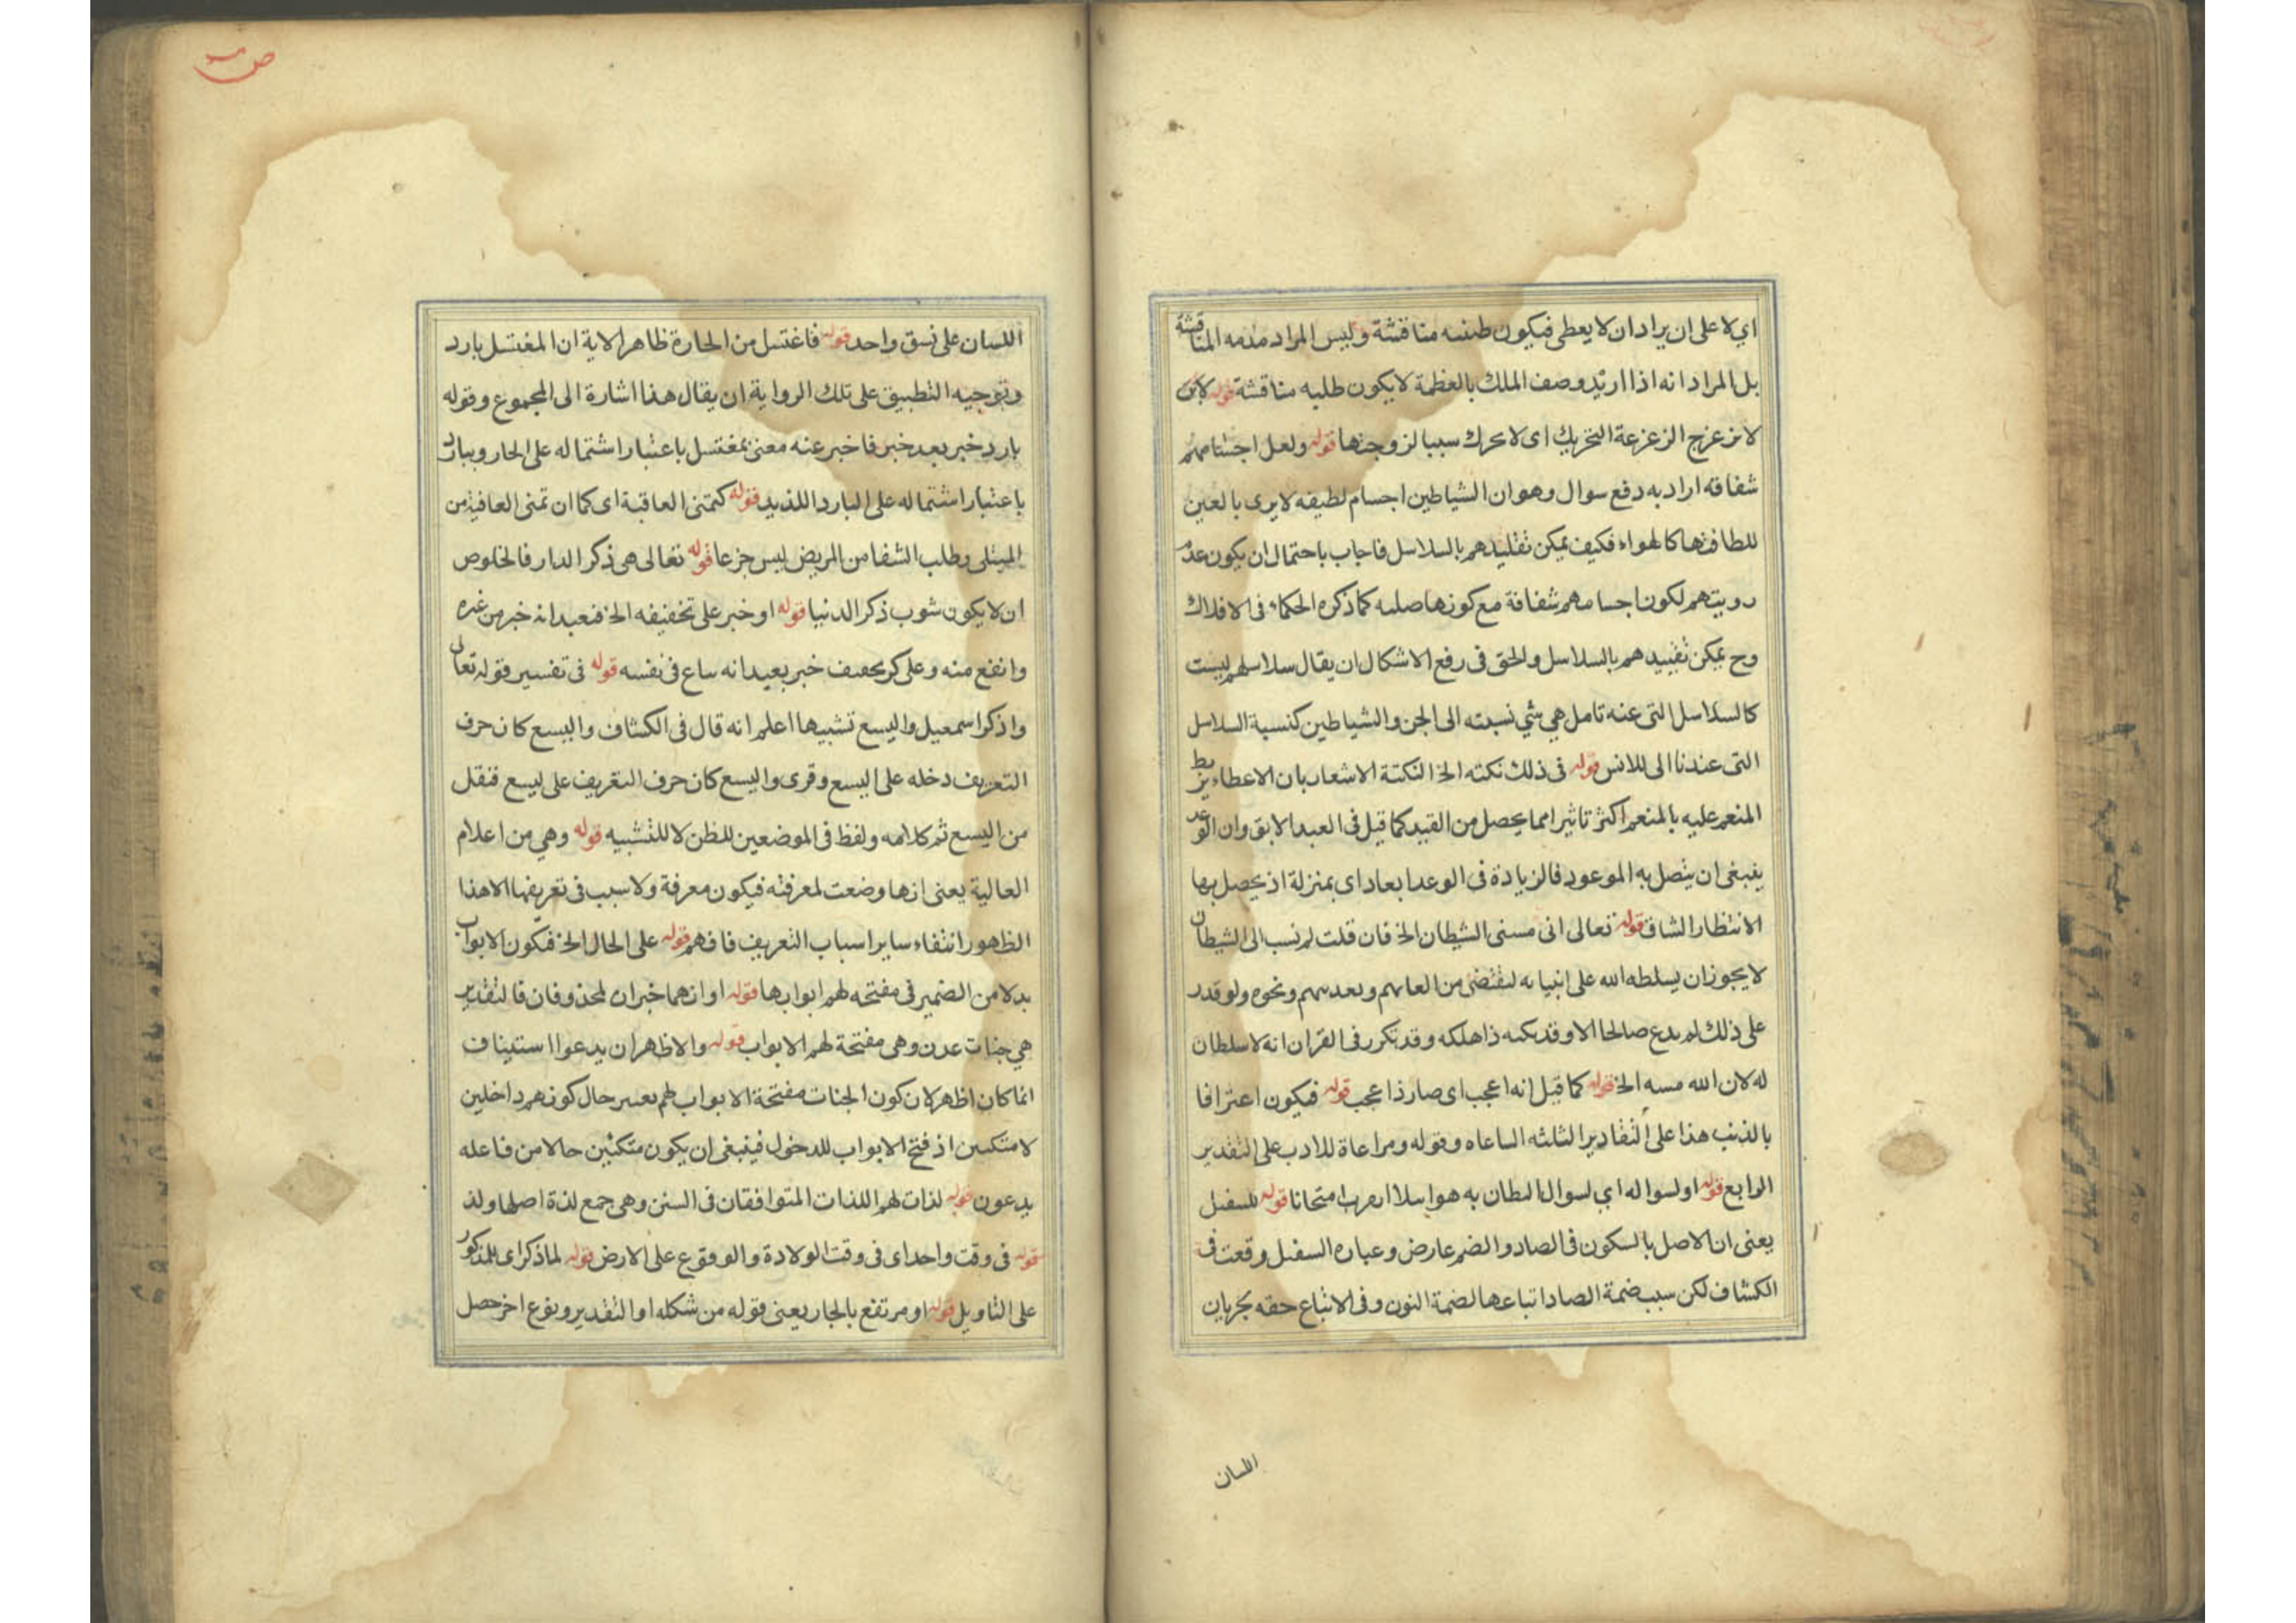 اي لا على ان يراد ان لا يعطى فيكون مناقشة وليس المراد المناقشة
بل المراد انه اذا اريد وصف الملك بالعظمة لا يكون طلبه مناقشة قوله
لا تزعزع الزعزعة التحريك اى لا تحرك سببا لزوجتها قوله ولعل اجسامهم
شفافه اراد به دفع سوال وهو ان الشياطين اجسام لطيفه لا يرى بالعين
للطافتها كالهواء فكيف يمكن تقليدهم بالسلاسل فاجاب باحتمال ان يكون عدم
رويتهم لكون اجسامهم شفافة مع كونها صلبه كما ذكره الحكماء فى الافلاك
وح يمكن تقييدهم بالسلاسل والحق فى رفع الاشكال ان يقال سلاسلهم ليست
كالسلاسل التى عنه تامل هي شي نسبته الى الجن والشياطين كنسبة السلاسل
التى عندنا الى للانس قوله فى ذلك نكته الخ النكتة الاشعار بان الاعطاء يربط
المنعم عليه بالمنعم اكثر تاثيرا مما يحصل من القيد كما قيل فى العبد الابق وان الوعد
ينبغى ان يتصل به الموعود فالزيادة فى الوعد ابعاد اى بمنزلة اذ يحصل بها
الانتظار الشاق قوله تعالى انى مسنى الشيطان الخ فان قلت لم نسب الى الشيطان
لا يجوز ان يسلطه الله على انبيائه لتقضى من وتعذيبهم ونحوه ولو قدر
على ذلك لم يدع صالحا الا وقد نكبه ذاهلكه وقد تكرر فى القران انه لا سلطان
له لان الله مسه الخ قوله كما قيل انه اعجب اى صار ذا عجب قوله فيكون اعترافا
بالذنب هذا على التقادير الثلثه وقوله ومراعاة للادب على التقدير
الرابع قوله او لسواله اي لسوال به هو امتحانا قوله
يعنى ان الاصل بالسكون فى الصاد والضم عارض وعباره وقعت فى
الكشاف لكن سبب ضمة الصاد اتباعها لضمة النون وفى الاتباع حقه بجريان
اللسان
ص
اللسان على نسق واحد قوله فاغتسل من الحارة ظاهر الاية ان المغتسل بارد
وتوجيه التطبيق على تلك الرواية ان يقال هذا اشارة الى المجموع وقوله
بارد خبر بعد خبر فاخبر عنه معنى بمغتسل باعتبار اشتماله على الحار وببارد
باعتبار اشتماله على البارد اللذيذ قوله كتمنى العاقبة اى كما ان تمنى العافية من
المبتلى وطلب الشفا من المريض ليس جزعا قوله تعالى هى ذكر الدار فالخلوص
ان لا يكون شوب ذكر الدنيا قوله او خبر على تخفيفه الخ فبعيد انه خبر من غيره
وانفع منه وعلى خبر بعيد انه ساع فى نفسه قوله فى تفسير قوله تعالى
واذكر اسمعيل واليسع تشبيها اعلم انه قال فى الكشاف واليسع كان حرف
التعريف دخله على اليسع وقرى واليسع كان حرف التعريف على ليسع فنقل
من اليسع ثم كلامه ولفظ فى الموضعين للظن لا للتشبيه قوله وهي من اعلام
العالية يعنى انها وضعت لمعرفته فيكون معرفة ولا سبب فى تعريفها الا هذا
الظهور انتفاء ساير اسباب التعريف فافهم قوله على الحال الخ فيكون الابواب
بدلا من الضمير فى مفتحه لهم ابوابها قوله او انهما خبران لمحذوفان فالتقدير
هي جنات عدن وهى مفتحة لهم الابواب قوله والاظهر ان يدعوا استيناف
انما كان اظهر لان كون الجنات مفتحة الابواب لهم حال كونهم داخلين
لا متكئين اذ فتح الابواب للدخول فينبغى ان يكون متكئين حالا من فاعله
يدعون قوله لذات لهم اللذات المتوافقان فى السنن وهى جمع لذة اصلها ولد
قوله فى وقت واحد اى فى وقت الولادة والوقوع على الارض قوله لما ذكر اى للمذكور
على التاويل قوله او مرتفع بالجار يعنى قوله من شكله او التقدير ونوع اخر حصل